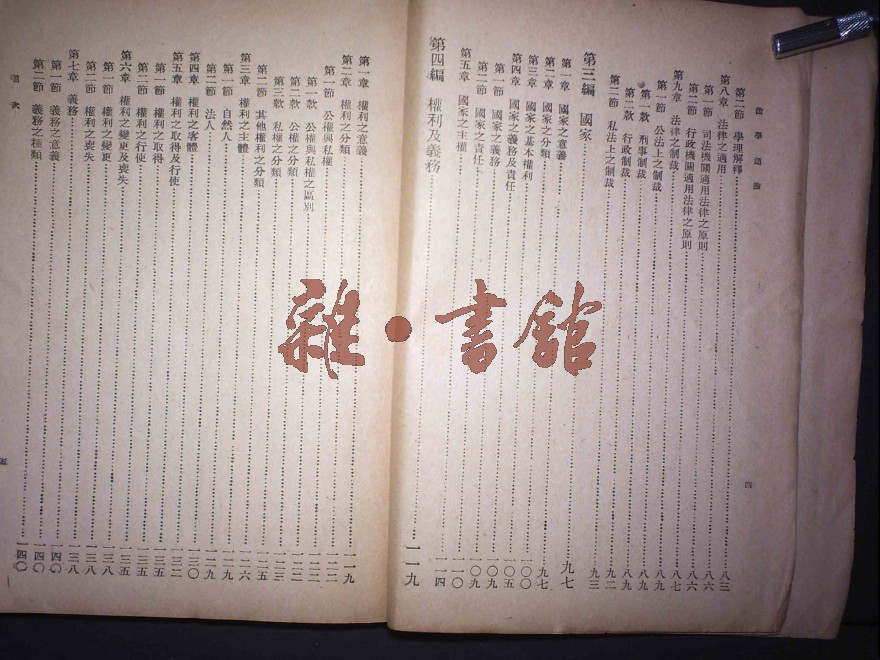 法學通論
第二節 學理解釋 八三
第八章 法律之適用 八六
第一節 司法機關適用法律之原則 八六
第二節 行政機關適用法律之原則 八六
第九章 法律之制裁 八七
第一節 公法上之制裁 八九
第一款 刑事制裁 八九
第二款 行政制裁 八九
第二節 私法上之制裁 九二
第三編 國家 九三
第一章 國家之意義 九七
第二章 國家之分類 九七
第三章 國家之基本權利 一〇〇
第四章 國家之義務及責任 一〇五
第一節 國家之義務 一〇九
第二節 國家之責任 一〇九
第五章 國家之主權 一一〇
第四編 權利及義務 一一九
四
第一章 權利之意義 一一九
第二章 權利之分類 一二二
第一節 公權與私權 一二二
第一款 公權與私權之區別 一二二
第二款 公權之分類 一二二
第三款 私權之分類 一二三
第二節 其他權利之分類 一二五
第三章 權利之主體 一二六
第一節 自然人 一二九
第二節 法人 一二九
第四章 權利之客體 一三〇
第五章 權利之取得及行使 一三二
第一節 權利之取得 一三五
第二節 權利之行使 一三五
第六章 權利之變更及喪失 一三五
第一節 權利之變更 一三八
第二節 權利之喪失 一三八
第七章 義務 一三八
第一節 義務之意義 一四〇
第二節 義務之種類 一四〇
目次
五
雜·書館